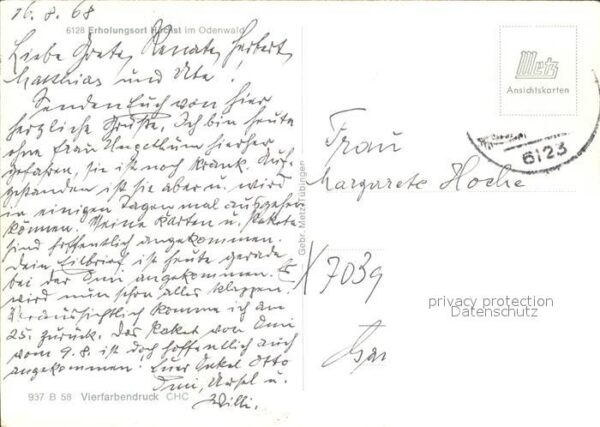 16.8.68
6128 Erholungsort Höchst im Odenwald
Liebe Grete, Renate, Herbert,
Matthias und Ute!
Senden Euch von hier
herzliche Grüße. Ich bin heute
ohne Frau hierher
gefahren, sie ist noch krank. Auf-
gestanden ist sie aber u. wird
in einigen Tagen mal ausgehen
können. Meine Karten u. Pakete
sind hoffentlich angekommen.
Dein Eilbrief ist heute gerade
bei der Omi angekommen. Es
wird nun schon alles klappen.
Voraussichtlich komme ich am
25. zurück. Das Paket von Omi
vom 9.8. ist doch hoffentlich auch
angekommen! Euer Onkel Otto
Omi, Ursel u.
Willi.
937 B 58 Vierfarbendruck CHC
Gebr. Metz, Tübingen
Metz
Ansichtskarten
6123
Frau
Margarete Hoche
X 7039
privacy protection
Datenschutz